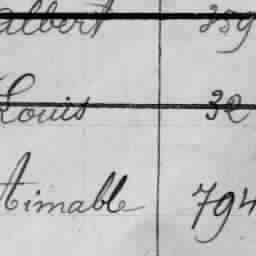 Albert 359
Louis 32
Aimable 794